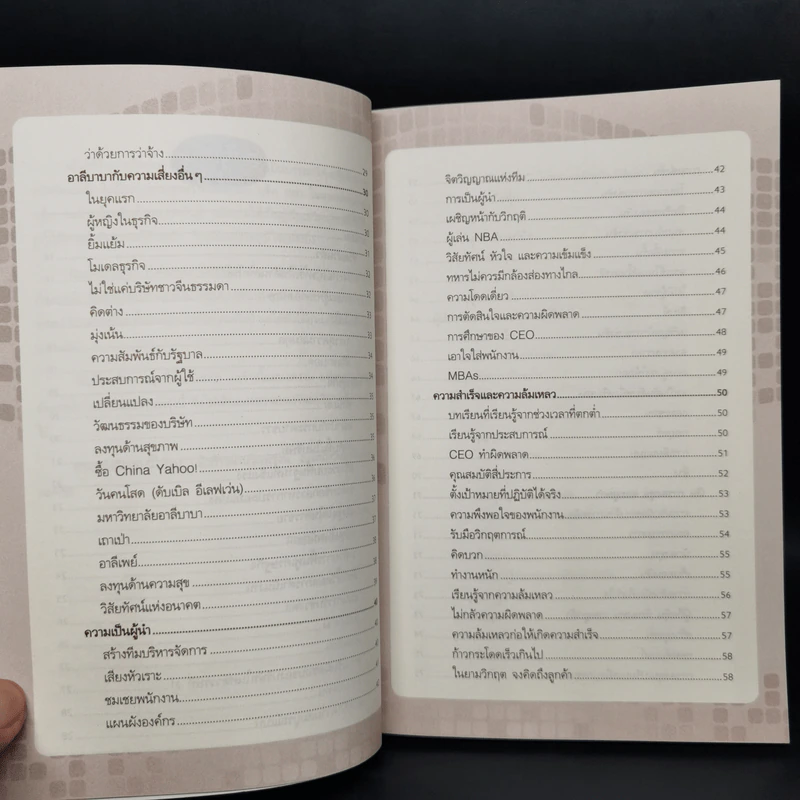 ว่าด้วยการว่าจ้าง 29
อาลีบาบากับความเสี่ยงอื่น ๆ 30
ในยุคแรก 30
ผู้หญิงในธุรกิจ 30
ยิ้มแย้ม 31
โมเดลธุรกิจ 32
ไม่ใช่แค่บริษัทชาวจีนธรรมดา 32
คิดต่าง 33
มุ่งเน้น 33
ความสัมพันธ์กับรัฐบาล 34
ประสบการณ์จากผู้ใช้ 34
เปลี่ยนแปลง 35
วัฒนธรรมของบริษัท 35
ลงทุนด้านสุขภาพ 35
ซื้อ China Yahoo! 36
วันคนโสด (ดับเบิล อีเลฟเว่น) 36
มหาวิทยาลัยอาลีบาบา 37
เถาเป่า 37
อาลีเพย์
ลงทุนด้านความสุข
วิสัยทัศน์แห่งอนาคต
ความเป็นผู้นำ 40
สร้างทีมบริหารจัดการ
เสียงหัวเราะ
ชมเชยพนักงาน
แผนผังองค์กร
จิตวิญญาณแห่งทีม 42
การเป็นผู้นำ 43
เผชิญหน้ากับวิกฤติ 44
ผู้เล่น NBA 44
วิสัยทัศน์ หัวใจ และความเข้มแข็ง 45
ทหารไม่ควรมีกล้องส่องทางไกล 46
ความโดดเดี่ยว 47
การตัดสินใจและความผิดพลาด 47
การศึกษาของ CEO 48
เอาใจใส่พนักงาน 49
MBAs 49
ความสำเร็จและความล้มเหลว 50
บทเรียนที่เรียนรู้จากช่วงเวลาที่ตกต่ำ 50
เรียนรู้จากประสบการณ์ 50
CEO ทำผิดพลาด 51
คุณสมบัติสี่ประการ 52
ตั้งเป้าหมายที่ปฏิบัติได้จริง 53
ความพึงพอใจของพนักงาน 53
รับมือวิกฤตการณ์ 54
คิดบวก 55
ทำงานหนัก 55
เรียนรู้จากความล้มเหลว 56
ไม่กลัวความผิดพลาด 57
ความล้มเหลวก่อให้เกิดความสำเร็จ 57
ก้าวกระโดดเร็วเกินไป 58
ในยามวิกฤต จงคิดถึงลูกค้า 58